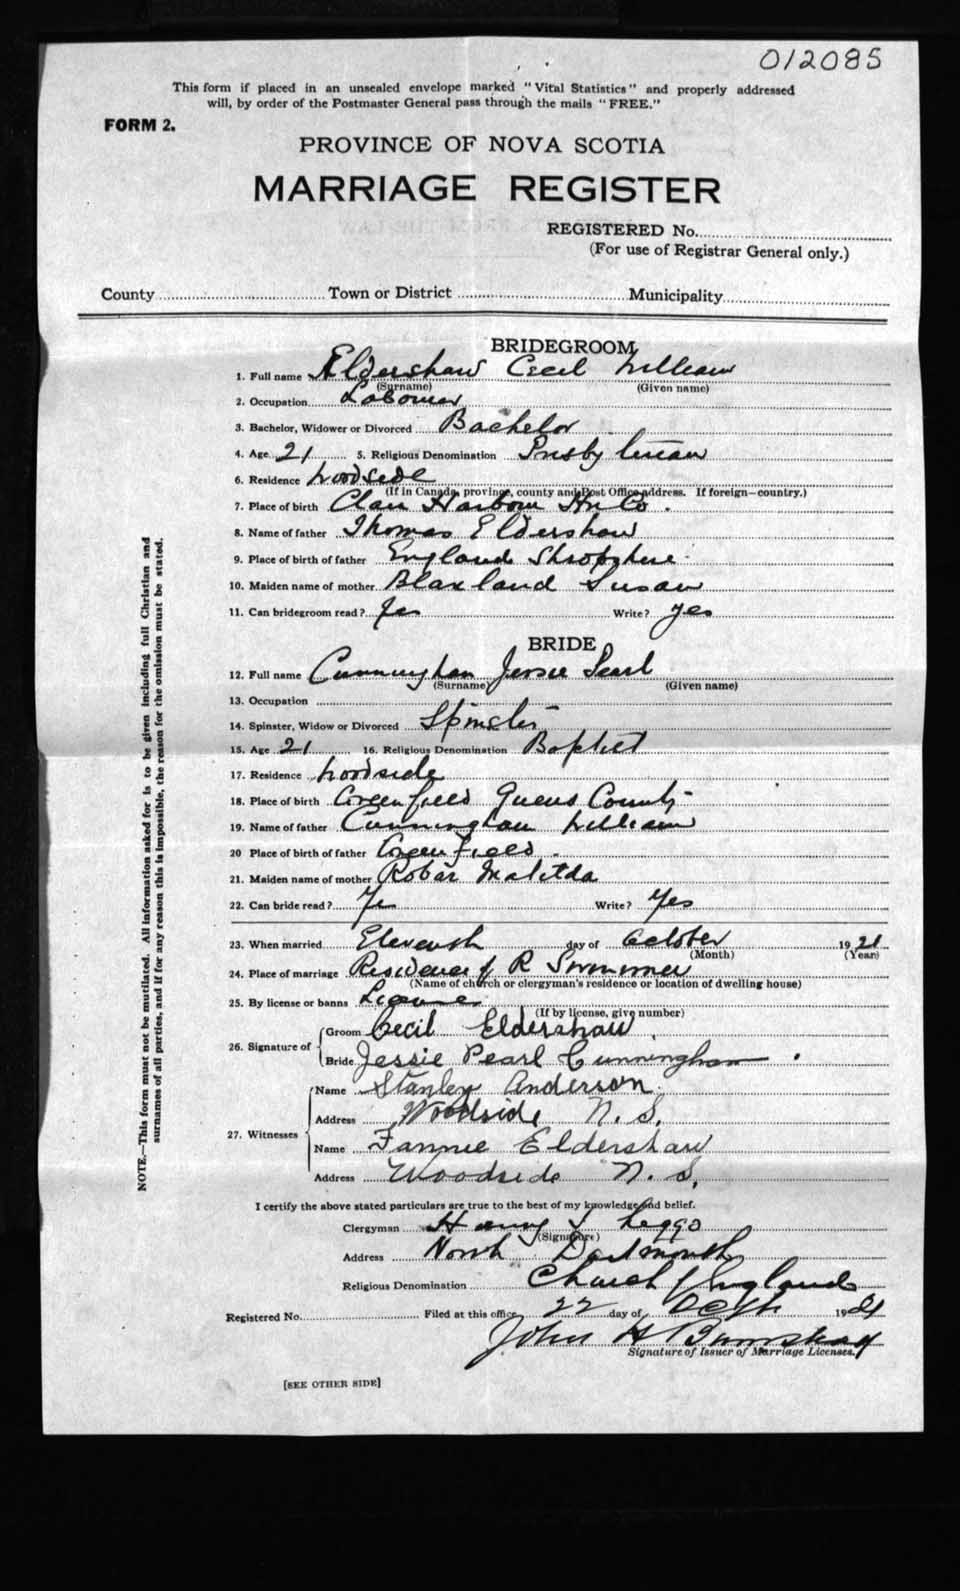 012085
This form if placed in an unsealed envelope marked "Vital Statistics" and properly addressed
will, by order of the Postmaster General pass through the mails "FREE."
FORM 2.
PROVINCE OF NOVA SCOTIA
MARRIAGE REGISTER
REGISTERED No.
(For use of Registrar General only.)
County Town or District Municipality
BRIDEGROOM
1. Full name Eldershaw Cecil William
(Surname) (Given name)
2. Occupation Labourer
3. Bachelor, Widower or Divorced Bachelor
4. Age 21 5. Religious Denomination Presbyterian
6. Residence Woodside
(If in Canada, province, county and Post Office address. If foreign—country.)
7. Place of birth Clam Harbour Hx Co.
8. Name of father Thomas Eldershaw
9. Place of birth of father England Shropshire
10. Maiden name of mother Blaxland Susan
11. Can bridegroom read? Yes Write? yes
BRIDE
12. Full name Cunningham Jessie Pearl
(Surname) (Given name)
13. Occupation
14. Spinster, Widow or Divorced Spinster
15. Age 21 16. Religious Denomination Baptist
17. Residence Woodside
18. Place of birth Greenfield Queens County
19. Name of father Cunningham William
20 Place of birth of father Greenfield
21. Maiden name of mother Robar Matilda
22. Can bride read? Yes Write? Yes
23. When married Eleventh day of October 1921
(Month) (Year)
24. Place of marriage Residence of R
(Name of church or clergyman's residence or location of dwelling house)
25. By license or banns License
(If by license, give number)
26. Signature of Groom Cecil Eldershaw
Bride Jessie Pearl Cunningham
27. Witnesses Name Stanley Anderson
Address Woodside N.S.
Name Fannie Eldershaw
Address Woodside N.S.
I certify the above stated particulars are true to the best of my knowledge and belief.
Clergyman Henry Leggo
(Signature)
Address North Dartmouth
Religious Denomination Church of England
Registered No. Filed at this office 22 day of 1921
John H
Signature of Issuer of Marriage Licenses.
[SEE OTHER SIDE]
NOTE.—This form must not be mutilated. All information asked for is to be given including full Christian and
surnames of all parties, and if for any reason this is impossible, the reason for the omission must be stated.